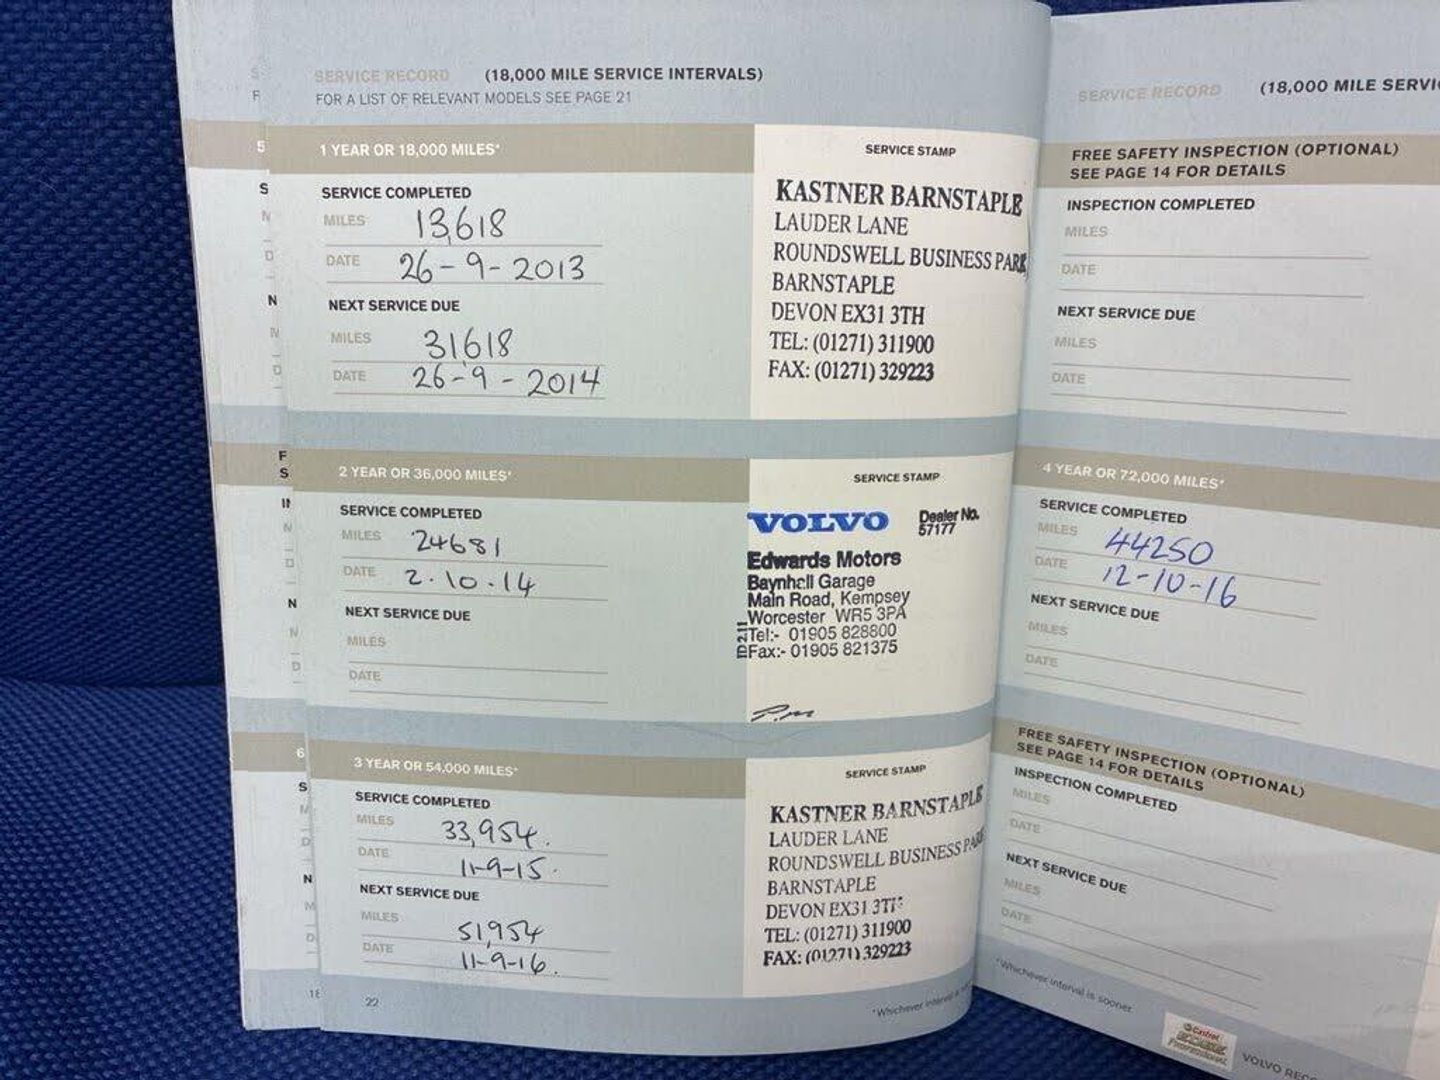 SERVICE RECORD (18,000 MILE SERVICE INTERVALS)
FOR A LIST OF RELEVANT MODELS SEE PAGE 21
1 YEAR OR 18,000 MILES*
SERVICE COMPLETED
MILES 13,618
DATE 26-9-2013
NEXT SERVICE DUE
MILES 31618
DATE 26-9-2014
SERVICE STAMP
KASTNER BARNSTAPLE
LAUDER LANE
ROUNDSWELL BUSINESS PARK,
BARNSTAPLE
DEVON EX31 3TH
TEL: (01271) 311900
FAX: (01271) 329223
2 YEAR OR 36,000 MILES*
SERVICE COMPLETED
MILES 24681
DATE 2.10.14
NEXT SERVICE DUE
MILES
DATE
SERVICE STAMP
VOLVO Dealer No.
57177
Edwards Motors
Baynhall Garage
Main Road, Kempsey
Worcester WR5 3PA
Tel:- 01905 828800
Fax:- 01905 821375
3 YEAR OR 54,000 MILES*
SERVICE COMPLETED
MILES 33,954.
DATE 11-9-15.
NEXT SERVICE DUE
MILES 51,954
DATE 11-9-16.
SERVICE STAMP
KASTNER BARNSTAPLE
LAUDER LANE
ROUNDSWELL BUSINESS PARK
BARNSTAPLE
DEVON EX31 3TH
TEL: (01271) 311900
FAX: (01271) 329223
22
*Whichever interval is
SERVICE RECORD (18,000 MILE
FREE SAFETY INSPECTION (OPTIONAL)
SEE PAGE 14 FOR DETAILS
INSPECTION COMPLETED
MILES
DATE
NEXT SERVICE DUE
MILES
DATE
4 YEAR OR 72,000 MILES*
SERVICE COMPLETED
MILES 44250
DATE 12-10-16
NEXT SERVICE DUE
MILES
DATE
FREE SAFETY INSPECTION (OPTIONAL)
SEE PAGE 14 FOR DETAILS
INSPECTION COMPLETED
MILES
DATE
NEXT SERVICE DUE
MILES
DATE
*Whichever interval is sooner
Castrol
EDGE
Professional
VOLVO